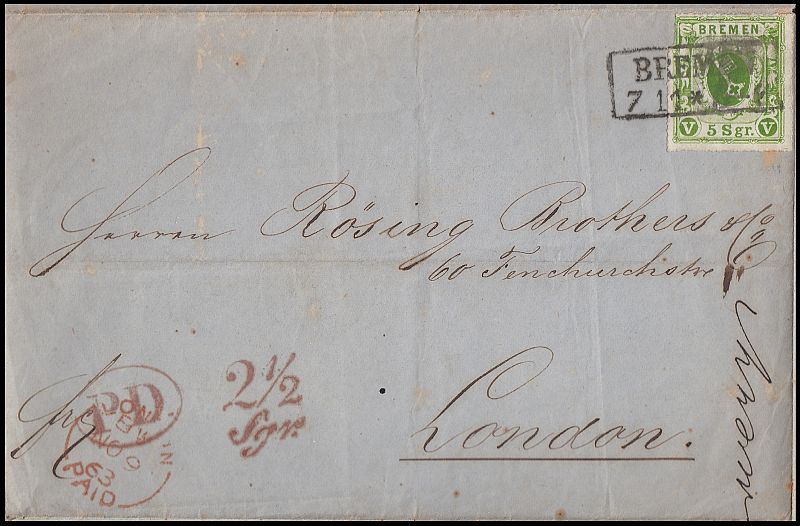 BREMEN
5 Sgr.
V V
BREMEN
7 11 *
Herren Rösing Brothers & Co
60 Fenchurchstr
London.
frc
P.D.
2 1/2
Sgr.
LONDON
63
PAID